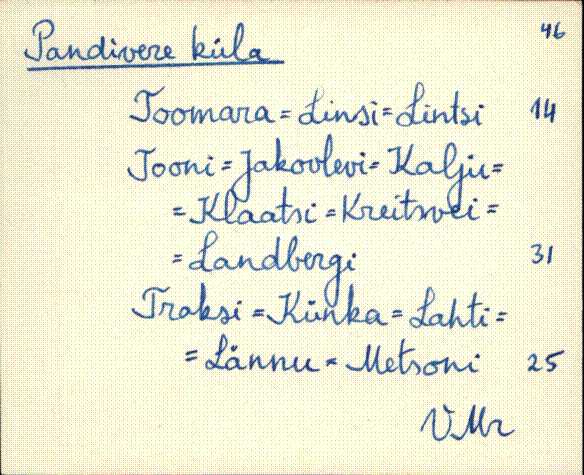 46
Pandivere küla
Toomara = Linsi = Lintsi 14
Tooni = Jakovlevi = Kalju =
= Klaatsi = Kreitsvei =
= Landbergi 31
Traksi = Künka = Lahti =
= Lännu = Metsoni 25
VMr